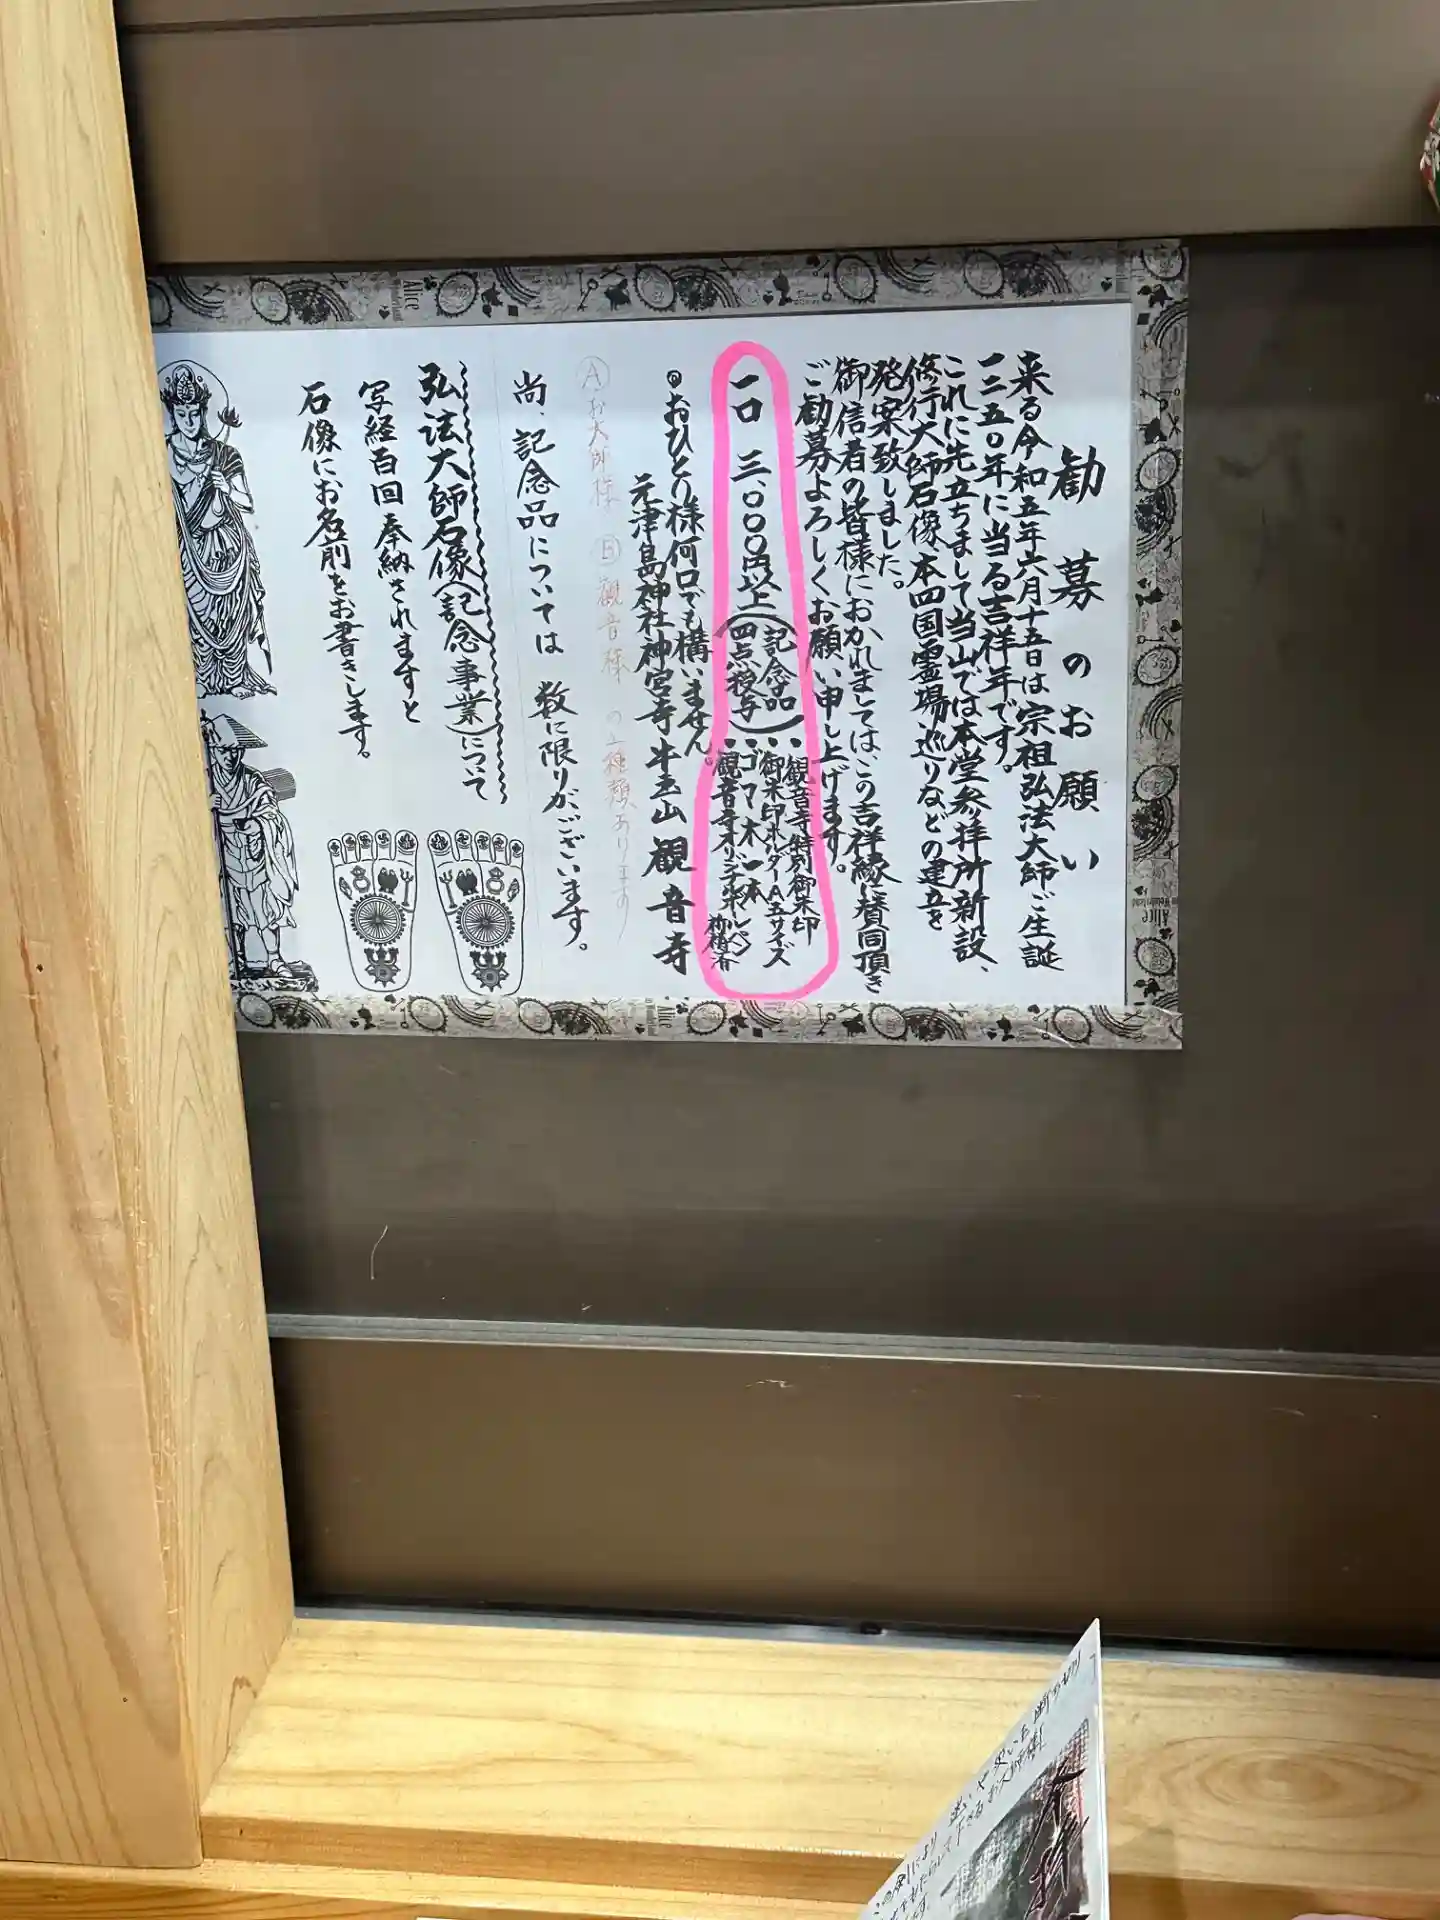 勧募のお願い
来る令和五年六月十五日は宗祖弘法大師ご生誕
一二五〇年に当る吉祥年です。
これに先立ちまして当山では本堂参拝所新設、
修行大師石像、本四国霊場巡りなどの建立を
発案致しました。
御信者の皆様におかれましてはこの吉祥縁に賛同頂き
ご勧募よろしくお願い申し上げます。
一口 三、〇〇〇円以上(記念品四点授与)
・観音寺特別御朱印
・御朱印ホルダーA五サイズ
・ゴマ木一本
・観音寺オリジナルボールペン
◎おひとり様何口でも構いません。
元津島神社神宮寺 牛玉山 観音寺
Ⓐお大師様 Ⓑ観音様 の二種類あります
尚、記念品については 数に限りがございます。
弘法大師石像(記念事業)について
写経百回奉納されますと
石像にお名前をお書きします。
Alice
Alice
Alice